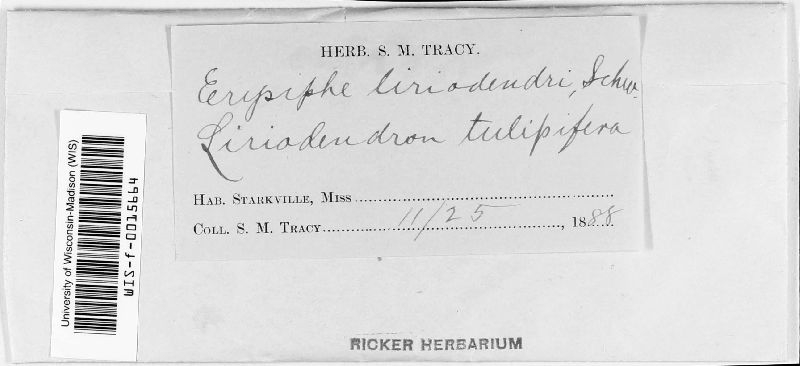 HERB. S. M. TRACY.
Erysiphe liriodendri, Schw.
Liriodendron tulipifera
HAB. STARKVILLE, MISS
COLL. S. M. TRACY 11/25, 1888
University of Wisconsin-Madison (WIS)
WIS-f-0015664
RICKER HERBARIUM